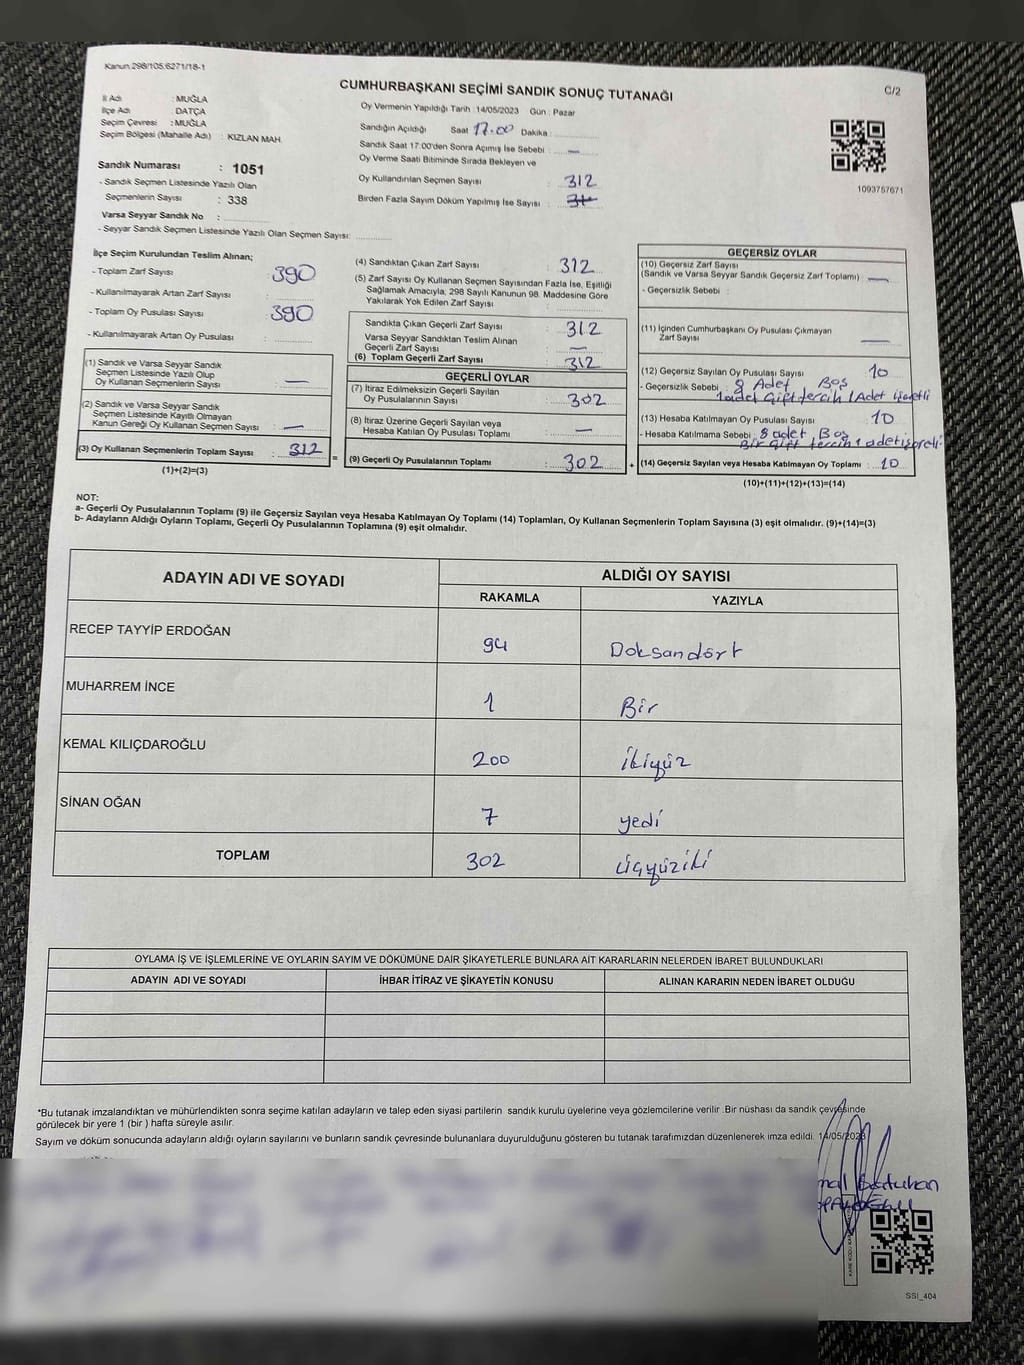 Kanun:298/105;6271/18-1
C/2
CUMHURBAŞKANI SEÇİMİ SANDIK SONUÇ TUTANAĞI
İl Adı : MUĞLA
İlçe Adı : DATÇA
Seçim Çevresi : MUĞLA
Seçim Bölgesi (Mahalle Adı) : KIZLAN MAH.
Oy Vermenin Yapıldığı Tarih : 14/05/2023 Gün : Pazar
Sandığın Açıldığı Saat 17.00 Dakika :
Sandık Saat 17:00'den Sonra Açımış İse Sebebi : —
Oy Verme Saati Bitiminde Sırada Bekleyen ve
Oy Kullandırılan Seçmen Sayısı : 312
Birden Fazla Sayım Döküm Yapılmış İse Sayısı :
1093757671
Sandık Numarası : 1051
- Sandık Seçmen Listesinde Yazılı Olan
Seçmenlerin Sayısı : 338
Varsa Seyyar Sandık No :
- Seyyar Sandık Seçmen Listesinde Yazılı Olan Seçmen Sayısı:
İlçe Seçim Kurulundan Teslim Alınan;
- Toplam Zarf Sayısı : 390
- Kullanılmayarak Artan Zarf Sayısı :
- Toplam Oy Pusulası Sayısı : 390
- Kullanılmayarak Artan Oy Pusulası :
(1) Sandık ve Varsa Seyyar Sandık
Seçmen Listesinde Yazılı Olup
Oy Kullanan Seçmenlerin Sayısı : —
(2) Sandık ve Varsa Seyyar Sandık
Seçmen Listesinde Kayıtlı Olmayan
Kanun Gereği Oy Kullanan Seçmen Sayısı : —
(3) Oy Kullanan Seçmenlerin Toplam Sayısı : 312
(1)+(2)=(3)
(4) Sandıktan Çıkan Zarf Sayısı : 312
(5) Zarf Sayısı Oy Kullanan Seçmen Sayısından Fazla İse, Eşitliği
Sağlamak Amacıyla; 298 Sayılı Kanunun 98. Maddesine Göre
Yakılarak Yok Edilen Zarf Sayısı :
Sandıkta Çıkan Geçerli Zarf Sayısı : 312
Varsa Seyyar Sandıktan Teslim Alınan
Geçerli Zarf Sayısı : —
(6) Toplam Geçerli Zarf Sayısı : 312
GEÇERLİ OYLAR
(7) İtiraz Edilmeksizin Geçerli Sayılan
Oy Pusulalarının Sayısı : 302
(8) İtiraz Üzerine Geçerli Sayılan veya
Hesaba Katılan Oy Pusulası Toplamı : —
= (9) Geçerli Oy Pusulalarının Toplamı : 302 +
GEÇERSİZ OYLAR
(10) Geçersiz Zarf Sayısı
(Sandık ve Varsa Seyyar Sandık Geçersiz Zarf Toplamı) : —
- Geçersizlik Sebebi :
(11) İçinden Cumhurbaşkanı Oy Pusulası Çıkmayan
Zarf Sayısı : —
(12) Geçersiz Sayılan Oy Pusulası Sayısı : 10
- Geçersizlik Sebebi : 8 Adet Boş
1 adet Çift tercih 1 Adet işaretli
(13) Hesaba Katılmayan Oy Pusulası Sayısı : 10
- Hesaba Katılmama Sebebi : 8 adet Boş
Bir Çift tercih 1 adet işaretli
(14) Geçersiz Sayılan veya Hesaba Katılmayan Oy Toplamı : 10
(10)+(11)+(12)+(13)=(14)
NOT:
a- Geçerli Oy Pusulalarının Toplamı (9) ile Geçersiz Sayılan veya Hesaba Katılmayan Oy Toplamı (14) Toplamları, Oy Kullanan Seçmenlerin Toplam Sayısına (3) eşit olmalıdır. (9)+(14)=(3)
b- Adayların Aldığı Oyların Toplamı, Geçerli Oy Pusulalarının Toplamına (9) eşit olmalıdır.
ADAYIN ADI VE SOYADI
ALDIĞI OY SAYISI
RAKAMLA YAZIYLA
RECEP TAYYİP ERDOĞAN 94 Doksandört
MUHARREM İNCE 1 Bir
KEMAL KILIÇDAROĞLU 200 ikiyüz
SİNAN OĞAN 7 yedi
TOPLAM 302 üçyüziki
OYLAMA İŞ VE İŞLEMLERİNE VE OYLARIN SAYIM VE DÖKÜMÜNE DAİR ŞİKAYETLERLE BUNLARA AİT KARARLARIN NELERDEN İBARET BULUNDUKLARI
ADAYIN ADI VE SOYADI İHBAR İTİRAZ VE ŞİKAYETİN KONUSU ALINAN KARARIN NEDEN İBARET OLDUĞU
*Bu tutanak imzalandıktan ve mühürlendikten sonra seçime katılan adayların ve talep eden siyasi partilerin sandık kurulu üyelerine veya gözlemcilerine verilir .Bir nüshası da sandık çevresinde
görülecek bir yere 1 (bir ) hafta süreyle asılır.
Sayım ve döküm sonucunda adayların aldığı oyların sayılarını ve bunların sandık çevresinde bulunanlara duyurulduğunu gösteren bu tutanak tarafımızdan düzenlenerek imza edildi. 14/05/2023
Batuhan
SSI_404